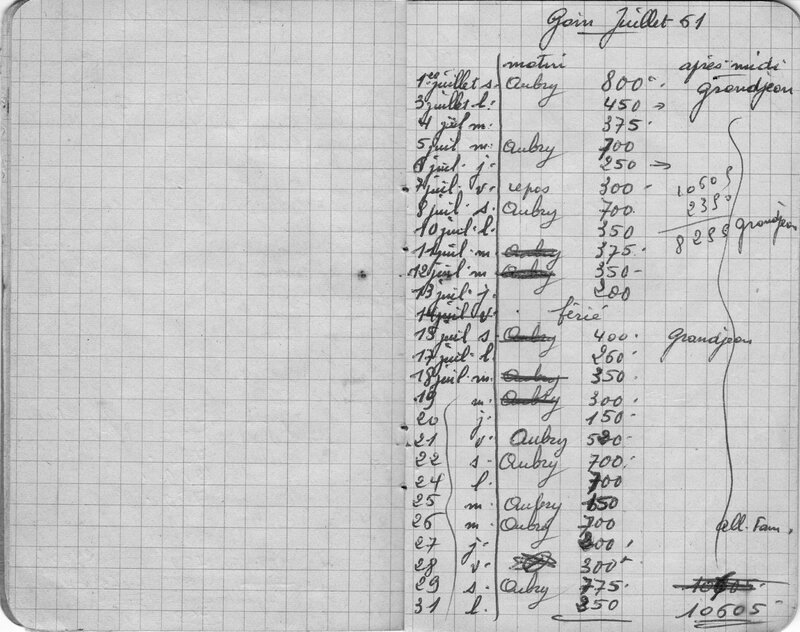 Gain Juillet 61
matin après-midi
1er juillet s. Aubry 800 Grandjean
3 juillet l. 450
4 juil m. 375
5 juil m. Aubry 700
6 juil. j. 250
7 juil. v. repos 300 10605
8 juil. s. Aubry 700 2350
10 juil. l. 350 8255 Grandjean
11 juil. m Aubry 375
12 juil. m Aubry 350
13 juil. j. 200
14 juil v. férié
15 juil s. Aubry 400 Grandjean
17 juil. l. 260
18 juil. m. Aubry 350
19 m. Aubry 300
20 j. 150
21 v. Aubry 520
22 s. Aubry 700
24 l. 700
25 m. Aubry 150
26 m. Aubry 700 all. Fam.
27 j. 200
28 v. 300
29 s. Aubry 775
31 l. 350 10605